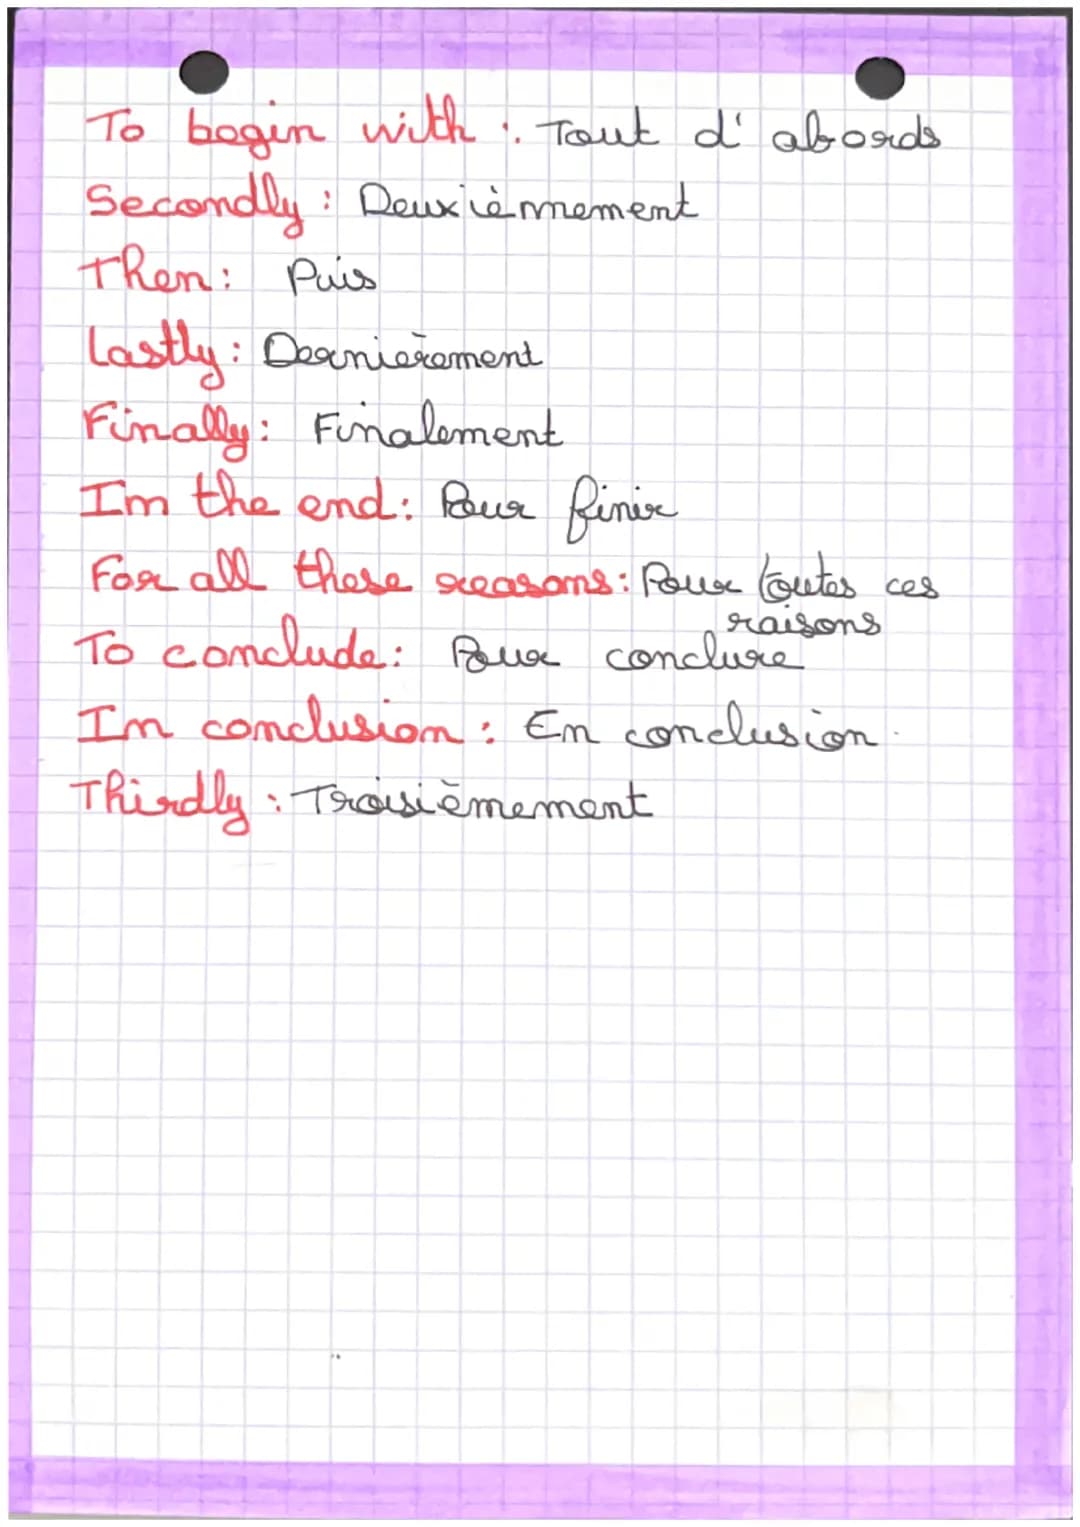 To begin with : Tout d'abords
Secondly : Deuxièmement
Then : Puis
Lastly : Dernièrement
Finally : Finalement
In the end : Pour finir
For all these reasons : Pour toutes ces
raisons
To conclude : Pour conclure
In conclusion : En conclusion.
Thirdly : Troisièmement